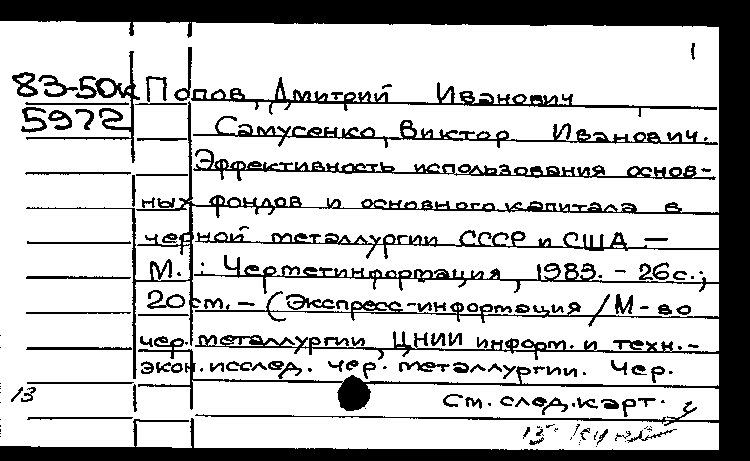 1
83-50к Попов, Дмитрий Иванович
5972 Самусенко, Виктор Иванович.
Эффективность использования основ-
ных фондов и основного капитала в
черной металлургии СССР и США —
М. : Черметинформация, 1983. - 26с.;
20см. - (Экспресс-информация / М-во
чер. металлургии, ЦНИИ информ. и техн.-
экон. исслед. чер. металлургии. Чер.
13 См. след. карт.